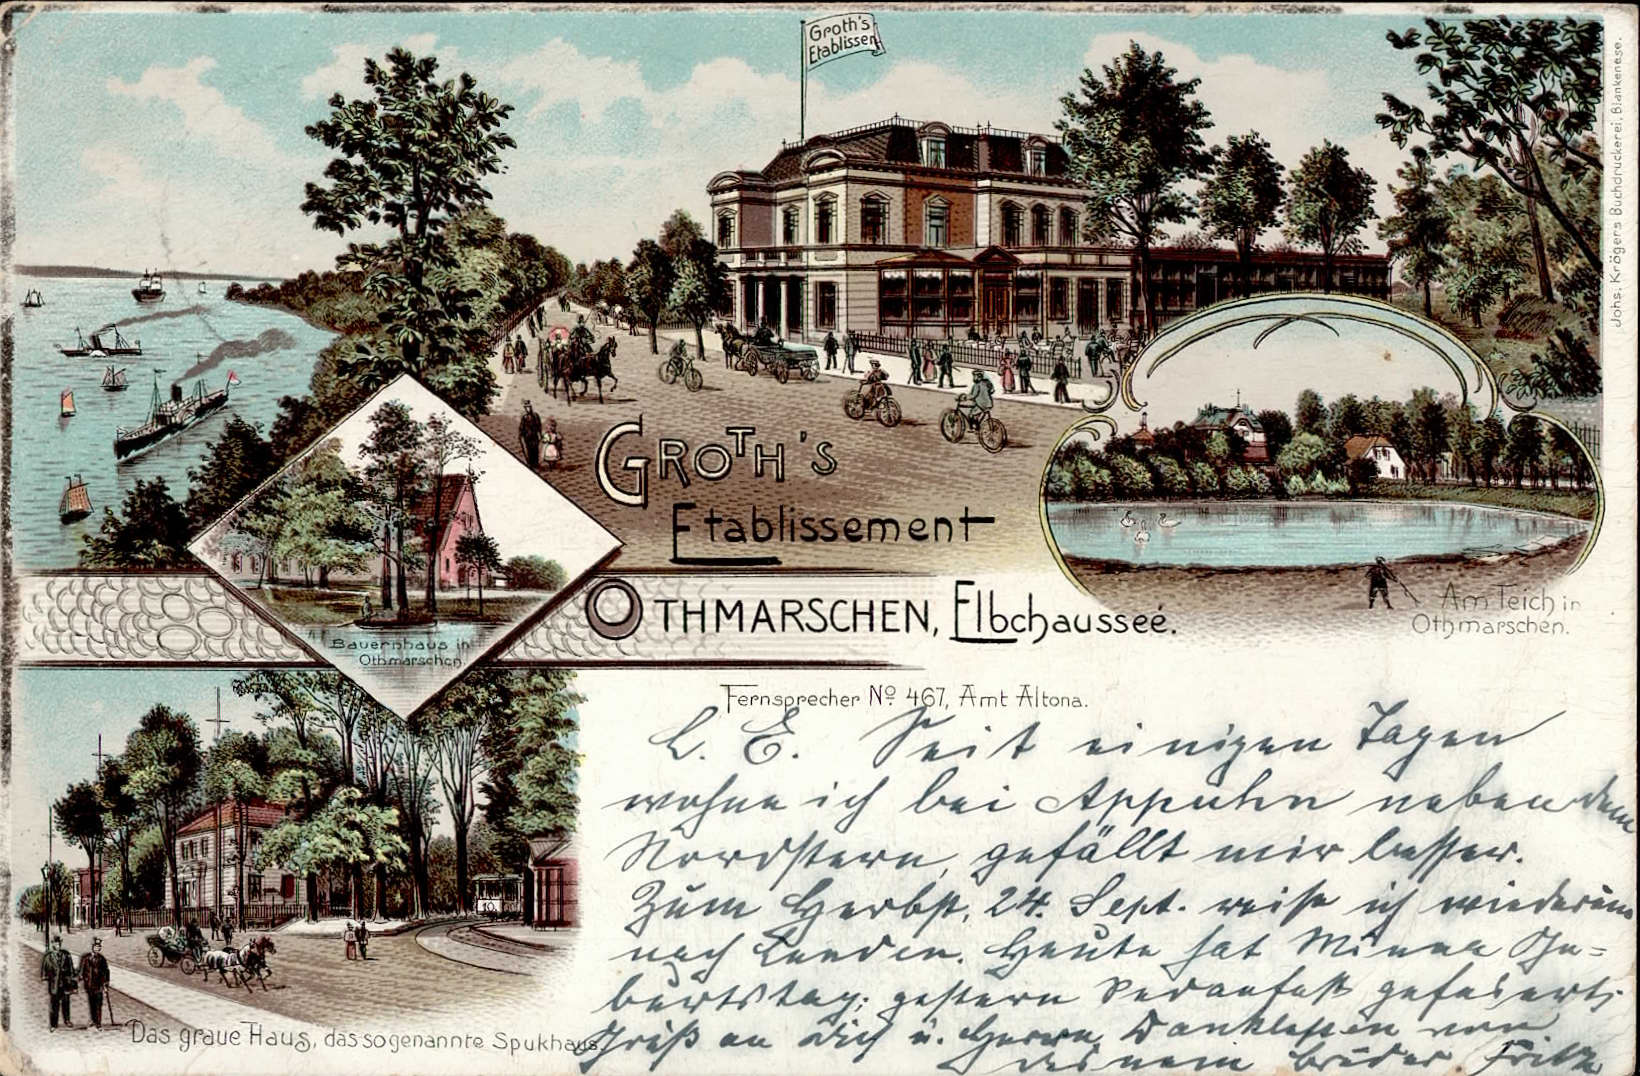 Groth's
Etablissem
Johs. Krögers Buchdruckerei, Blankenese.
GROTH'S
Etablissement
OTHMARSCHEN, Elbchaussée.
Fernsprecher No 467, Amt Altona.
Bauernhaus in
Othmarschen.
Am Teich in
Othmarschen.
10
Das graue Haus, das sogenannte Spukhaus.
L. E. Seit einigen Tagen
wohne ich bei Appuhn neben dem
Nordstern, gefällt mir besser.
Zum Herbst, 24. Sept. reise ich wiederum
nach Leuden. Heute hat Minna Ge=
burtstag; gestern Sedanfest gefeiert.
Gruß an Dich u. Herrn
deinem Bruder Fritz